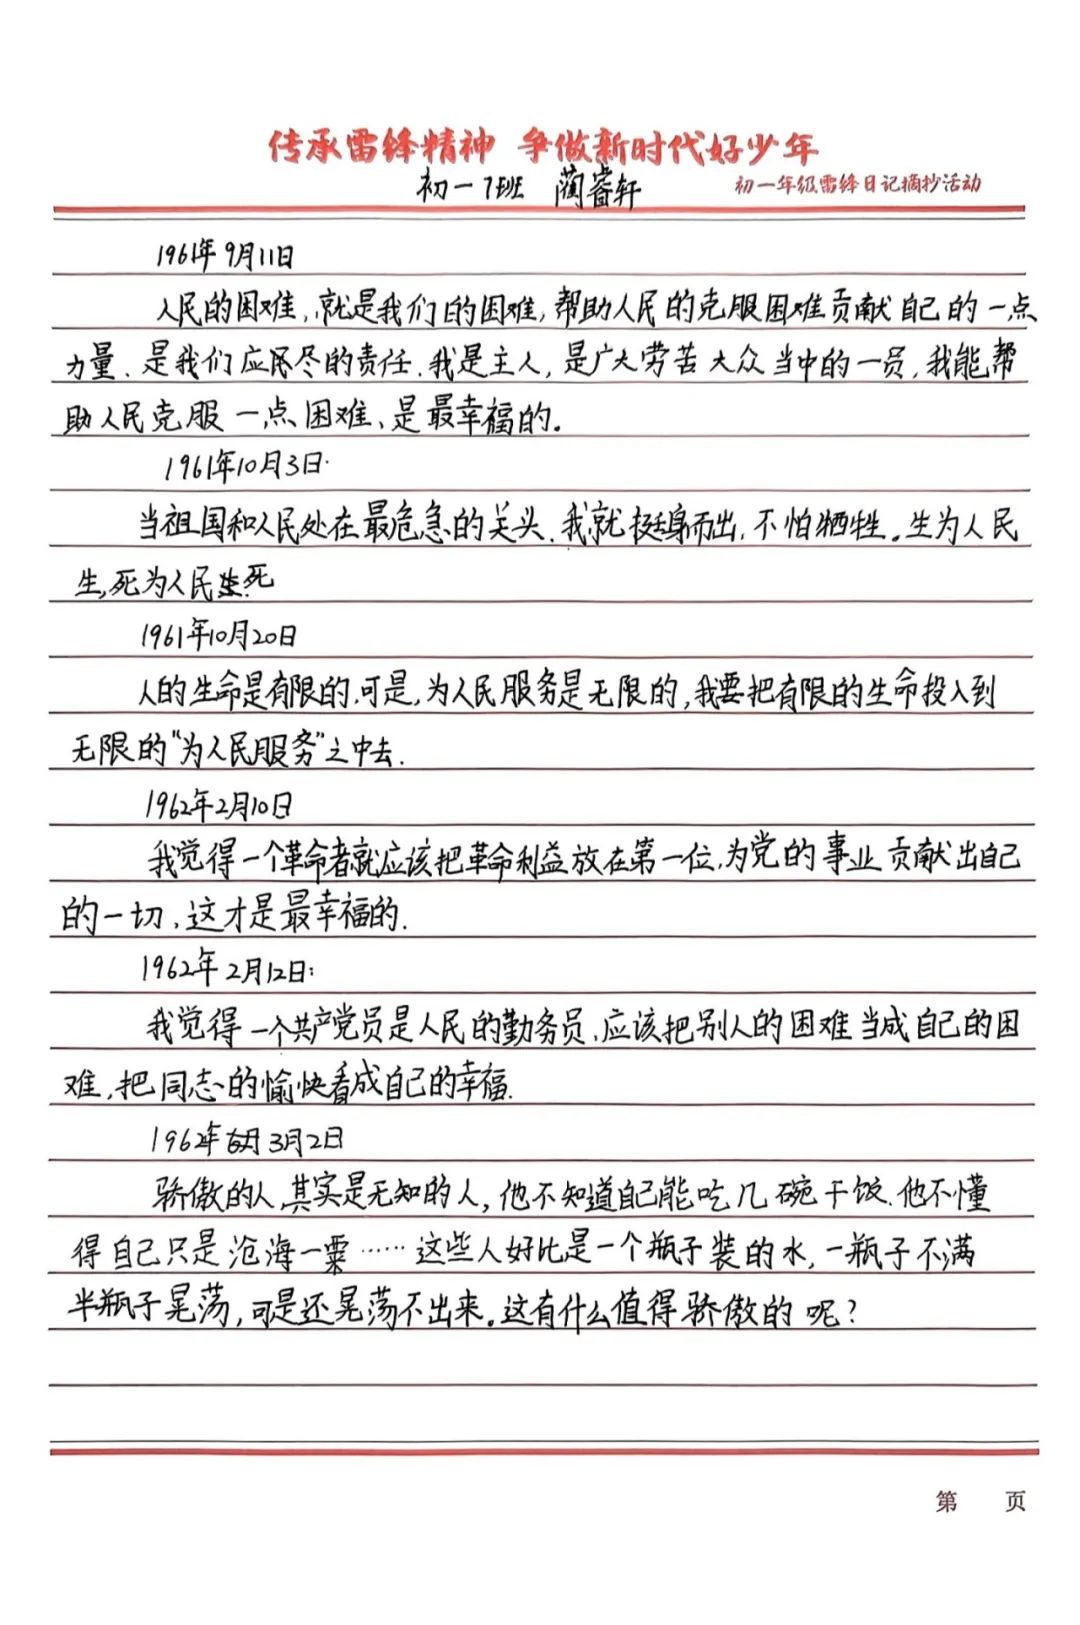 传承雷锋精神 争做新时代好少年
初一7班 蔺睿轩 初一年级雷锋日记摘抄活动
1961年9月11日
人民的困难,就是我们的困难,帮助人民的克服困难贡献自己的一点
力量、是我们应尽的责任.我是主人,是广大劳苦大众当中的一员,我能帮
助人民克服一点困难、是最幸福的。
1961年10月3日.
当祖国和人民处在最危急的关头.我就挺身而出,不怕牺牲。生为人民
生,死为人民死
1961年10月20日
人的生命是有限的.可是,为人民服务是无限的,我要把有限的生命投入到
无限的“为人民服务”之中去.
1962年2月10日
我觉得一个革命者就应该把革命利益放在第一位,为党的事业贡献出自己
的一切,这才是最幸福的.
1962年2月12日:
我觉得一个共产党员是人民的勤务员,应该把别人的困难当成自己的困
难,把同志的愉快看成自己的幸福.
1962年3月2日
骄傲的人,其实是无知的人,他不知道自己能吃几碗干饭.他不懂
得自己只是沧海一粟……这些人好比是一个瓶子装的水,一瓶子不满
半瓶子晃荡,可是还晃荡不出来。这有什么值得骄傲的呢?
第 页